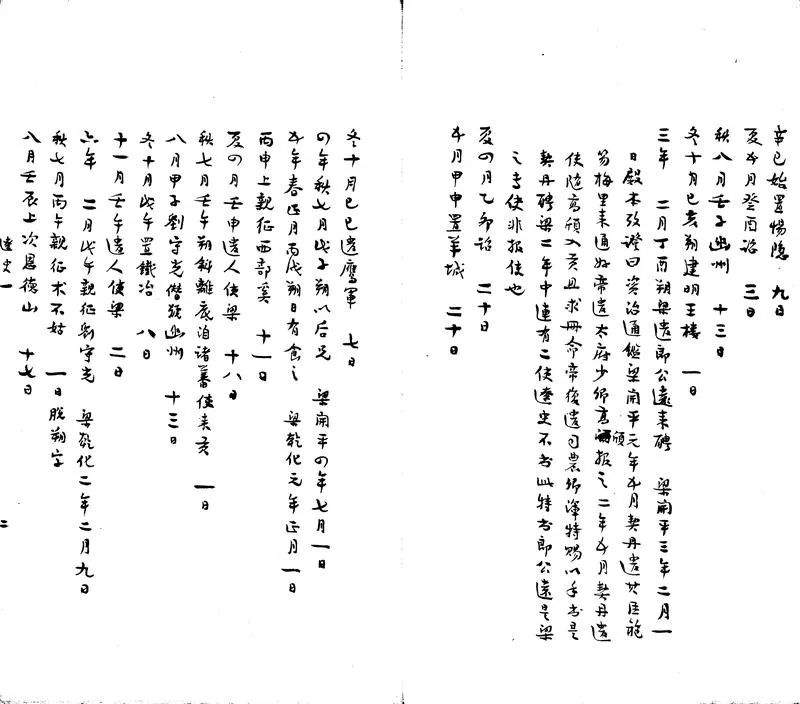 辛巳始置惕隱　九日
夏五月癸酉詔　三日
秋八月壬子幽州　十三日
冬十月己亥朔建明王樓　一日
三年　二月丁酉朔梁遣郎公遠来聘　梁開平三年二月一
日殿本攷證曰資治通鑑梁開平元年五月契丹遣其臣袍
笏梅里来通好帝遣太府少卿高頎報之二年五月契丹遣
使隨高頎入貢且求冊命帝復遣司農卿渾特賜以手書是
契丹聘梁二年中連有二使遼史不書此特書郎公遠是梁
之專使非報使也
夏四月乙卯詔　二十日
五月甲申置羊城　二十日
冬十月己巳遣鷹軍　七日
四年秋七月戊子朔以后兄　梁開平四年七月一日
五年春正月丙戌朔日有食之　梁乾化元年正月一日
丙申上親征西部奚　十一日
夏四月壬申遣人使梁　十八日
秋七月壬午朔斜離底洎諸蕃使来貢　一日
八月甲子劉守光僭號幽州　十三日
冬十月戊午置鐵冶　八日
十一月壬午遣人使梁　二日
六年　二月戊午親征劉守光　梁乾化二年二月九日
秋七月丙午親征朮不姑　一日脫朔字
八月壬辰上次恩德山　十七日
遼史一　二